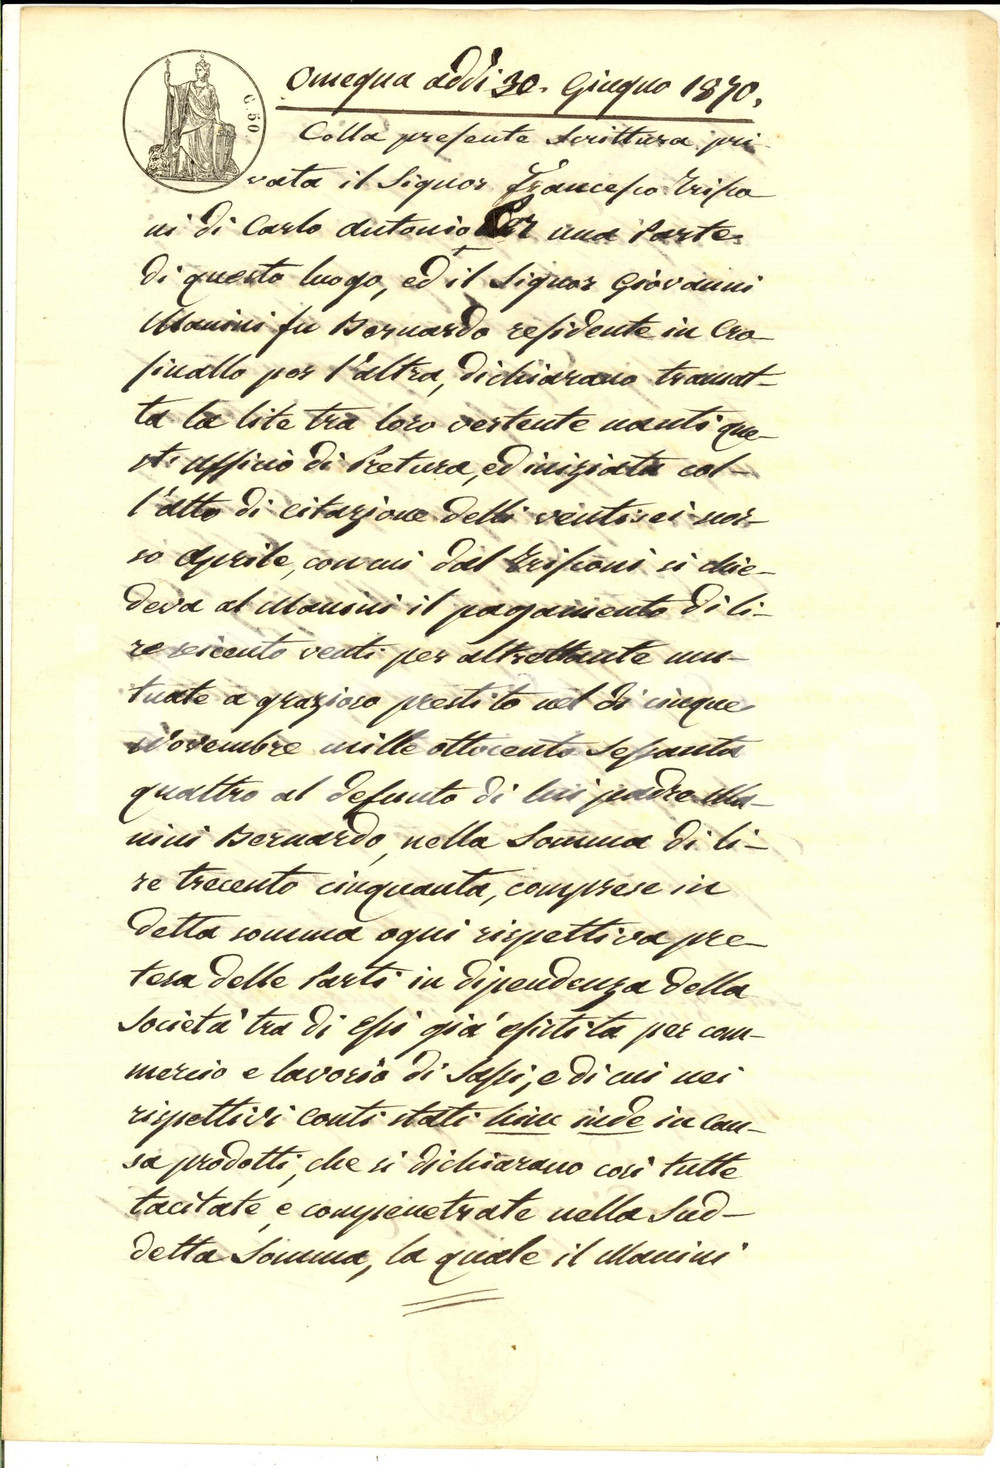 Omegna addì 30. Giugno 1870.
C. 50.
Colla presente Scrittura pri-
vata il Signor Francesco Trisco
ni di Carlo Antonio per una Parte
di questo luogo, ed il Signor Giovanni
Manini fu Bernardo residente in Cro-
sinallo per l'altra, dichiarano transat-
ta la lite tra loro vertente nanti que-
st' ufficio di Pretura, ed iniziata col-
l'atto di citazione delli ventisei scor-
so Aprile, con cui dal Trisconi si chie-
deva al Manini il pagamento di li-
re seicento venti per altrettante mu-
tuate a grazioso prestito nel dì cinque
Novembre mille ottocento sessanta
quattro al defunto di lui padre Ma-
nini Bernardo, nella Somma di li-
re trecento cinquanta, comprese in
detta somma ogni rispettiva pre-
tesa delle Parti in dipendenza della
Società tra di Essi già esistita per com-
mercio e lavorio di Sassi, e di cui nei
rispettivi Conti stati hinc inde in Cau-
sa prodotti, che si dichiarano così tutte
tacitate e compenetrate nella Sud-
detta Somma, la quale il Manini